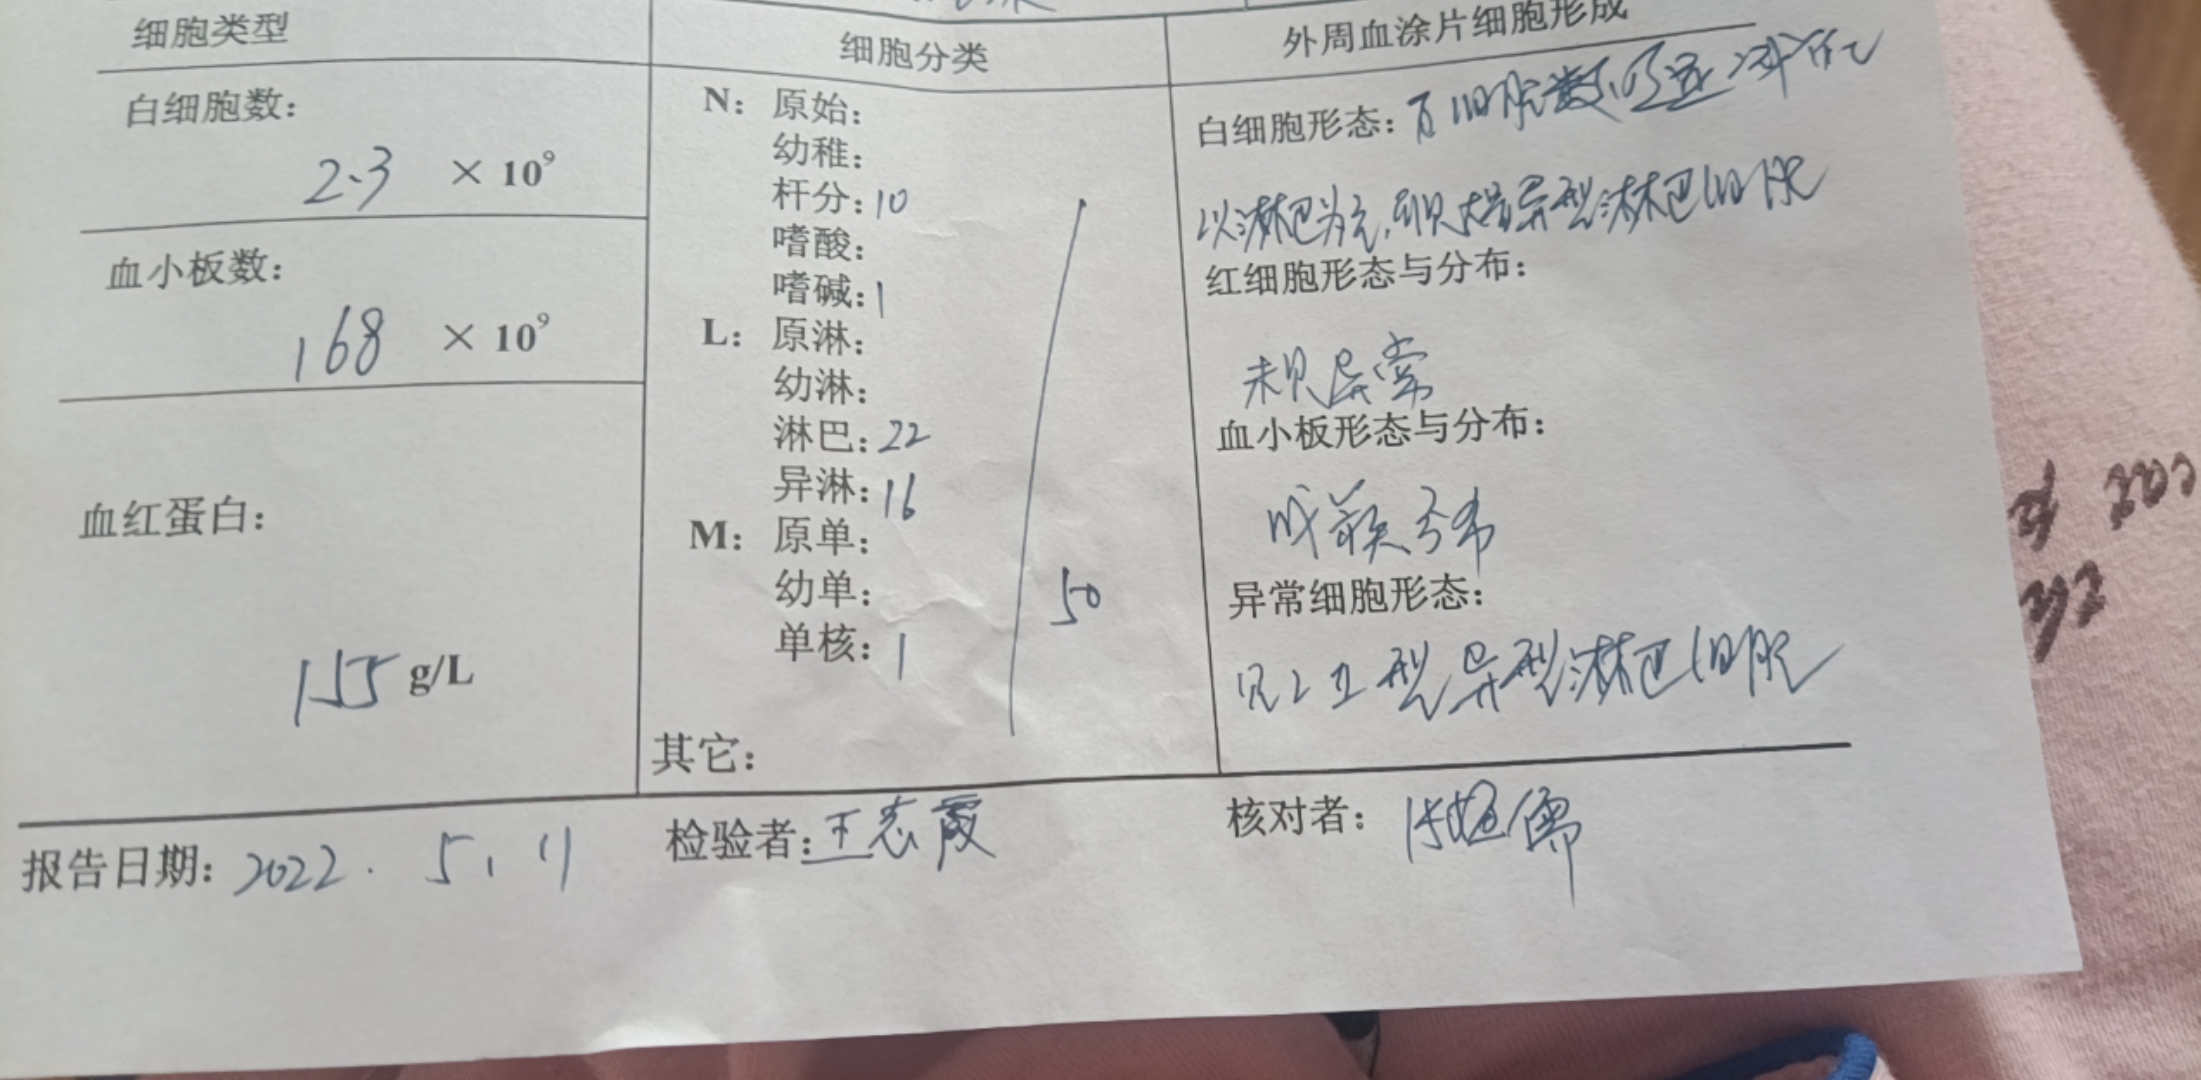 细胞类型
细胞分类
外周血涂片细胞形成
白细胞数：
2.3 × 10⁹
血小板数：
168 × 10⁹
血红蛋白：
155 g/L
N： 原始：
幼稚：
杆分：10
嗜酸：
嗜碱：1
L： 原淋：
幼淋：
淋巴：22
异淋：16
M： 原单：
幼单：
单核：1
50
其它：
白细胞形态：白细胞数明显减低
以淋巴为主，可见大量异型淋巴细胞
红细胞形态与分布：
未见异常
血小板形态与分布：
成簇分布
异常细胞形态：
见 型异型淋巴细胞
报告日期：2022.5.11
检验者：王志霞
核对者：
cat